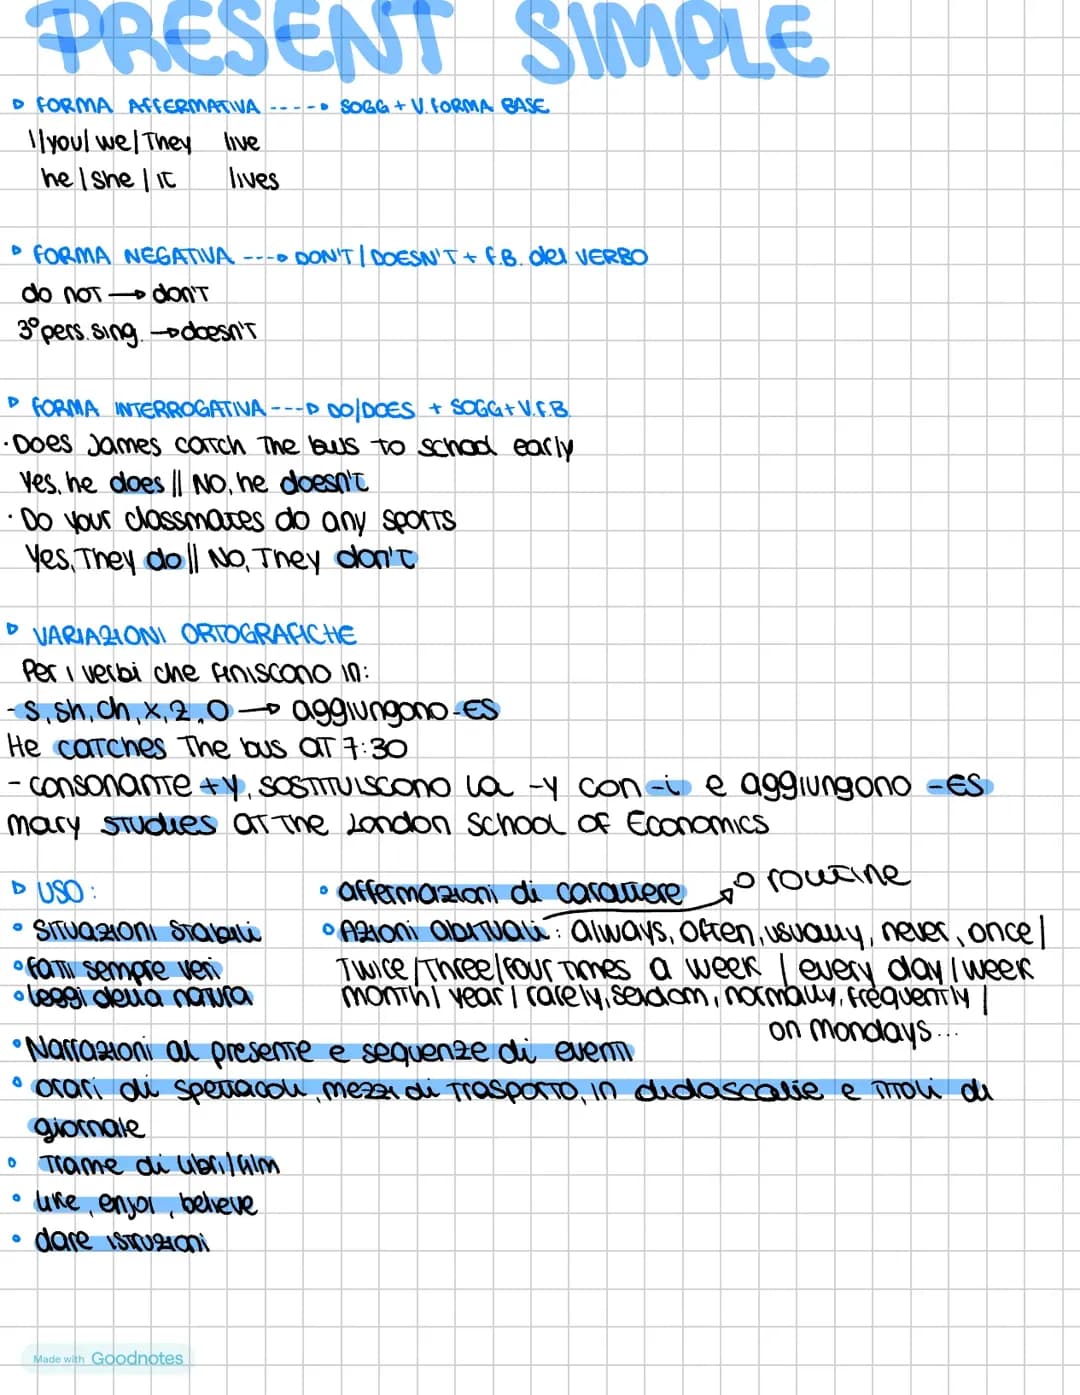 PRESENT SIMPLE
▷ FORMA AFFERMATIVA ----▷ SOGG + V. FORMA BASE
I/you/we/They live
he/she/it lives
▷ FORMA NEGATIVA ---▷ DON'T/DOESN'T + F.B. del VERBO
do not → don't
3° pers. sing. → doesn't
▷ FORMA INTERROGATIVA ---▷ DO/DOES + SOGG + V.F.B.
·Does James catch the bus to school early
Yes, he does || NO, he doesn't
·Do your classmates do any sports
Yes, They do || NO, They don't
▷ VARIAZIONI ORTOGRAFICHE
Per i verbi che finiscono in:
-s, sh, ch, x, z, o → aggiungono -ES
He catches the bus at 7:30
- consonante + y, sostituiscono la -y con -i e aggiungono -ES
mary studies at the London School of Economics
▷ USO:
• affermazioni di carattere
routine
• Situazioni stabili
• Azioni abituali: always, often, usually, never, once/
• fatti sempre veri
Twice/Three/four times a week / every day/week
• leggi della natura
month/year/rarely, seldom, normally, frequently/
on mondays...
• Narrazioni al presente e sequenze di eventi
• orari di spettacoli, mezzi di trasporto, in didascalie e titoli di
giornale
• Trame di libri/film
• like, enjoi, believe
• dare istruzioni
Made with Goodnotes